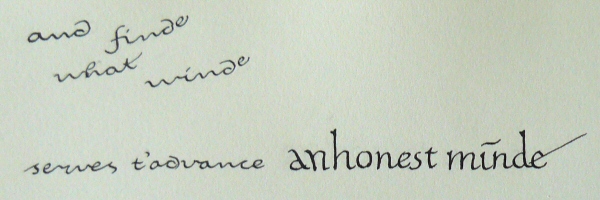 and finde
what winde
serves t'advance anhonest mīnde